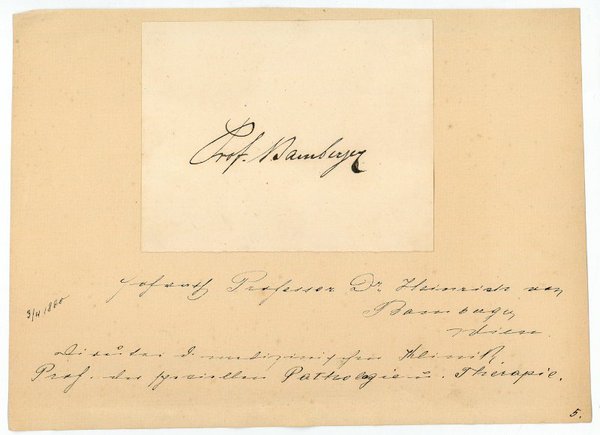 Prof. Bamberger
Hofrath Professor Dr. Heinrich von
3/4 1880
Bamberger,
Wien.
d. medizinischen Klinik,
Prof. der speciellen Pathologie u. Therapie.
5.